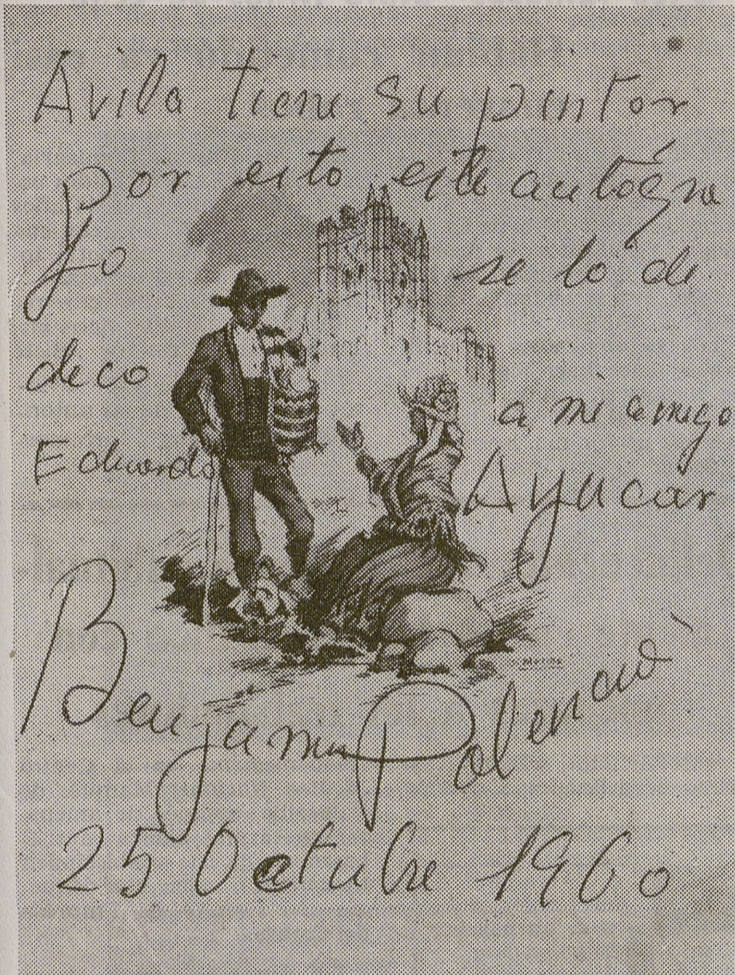 Avila tiene su pintor
por esto este autógra
fo se lo de
deco a mi amigo
Eduardo Ayucar
Benjamin Palencia
25 Octubre 1960